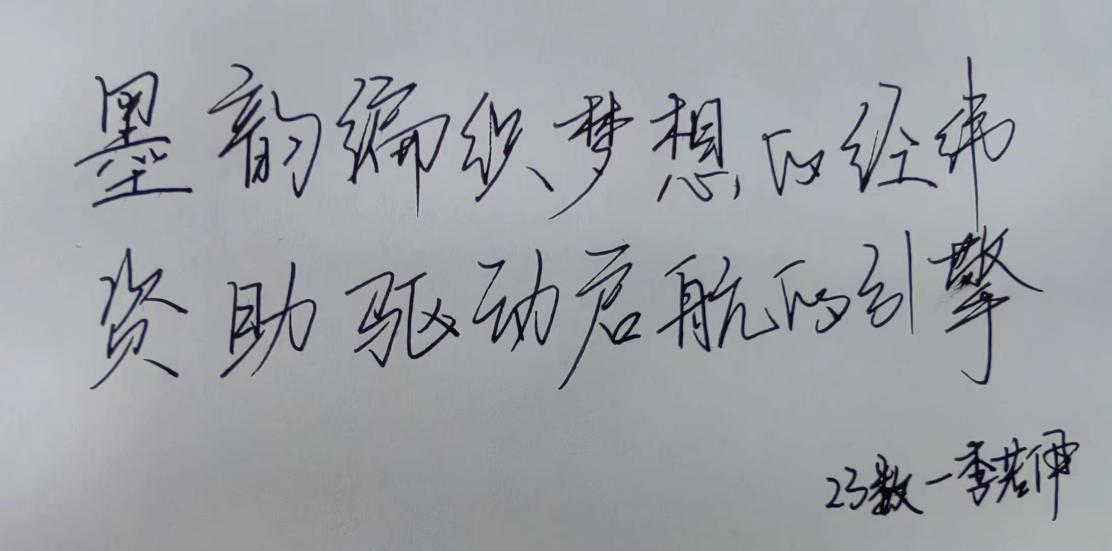 墨韵编织梦想的经纬
资助驱动启航的引擎
23数一李若